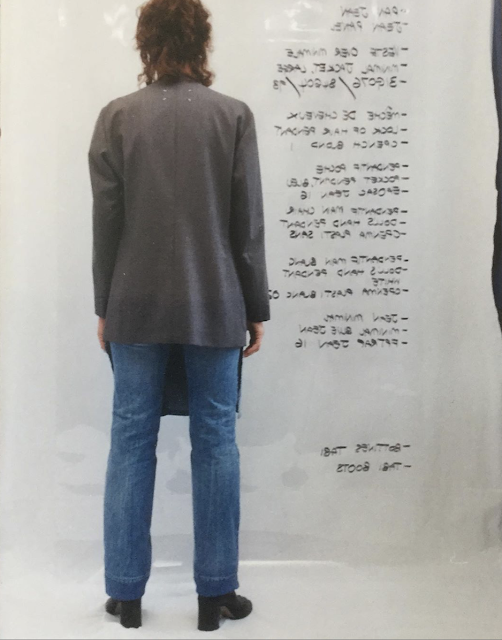 - PAN JEAN
- JEAN PANEL
- VESTE OVER MINIMALE
- MINIMAL JACKET, LARGE
- MÈCHE DE CHEVEUX
- LOCK OF HAIR PENDANT
- CPENCH BLOND 1
- PENDANTIF POCHE
- POCKET PENDANT, BLEU
- EPOSAC JEAN 16
- PENDANTIF MAIN CHAIR
- DOLLS HAND PENDANT
- CPENMA PLASTI SANS
- PENDANTIF MAIN BLANC
- DOLLS HAND PENDANT
WHITE
- CPENMA PLASTI BLANC 02
- JEAN MINIMAL
- MINIMAL BLUE JEAN
- JEAN 16
- BOTTINES TABI
- TABI BOOTS